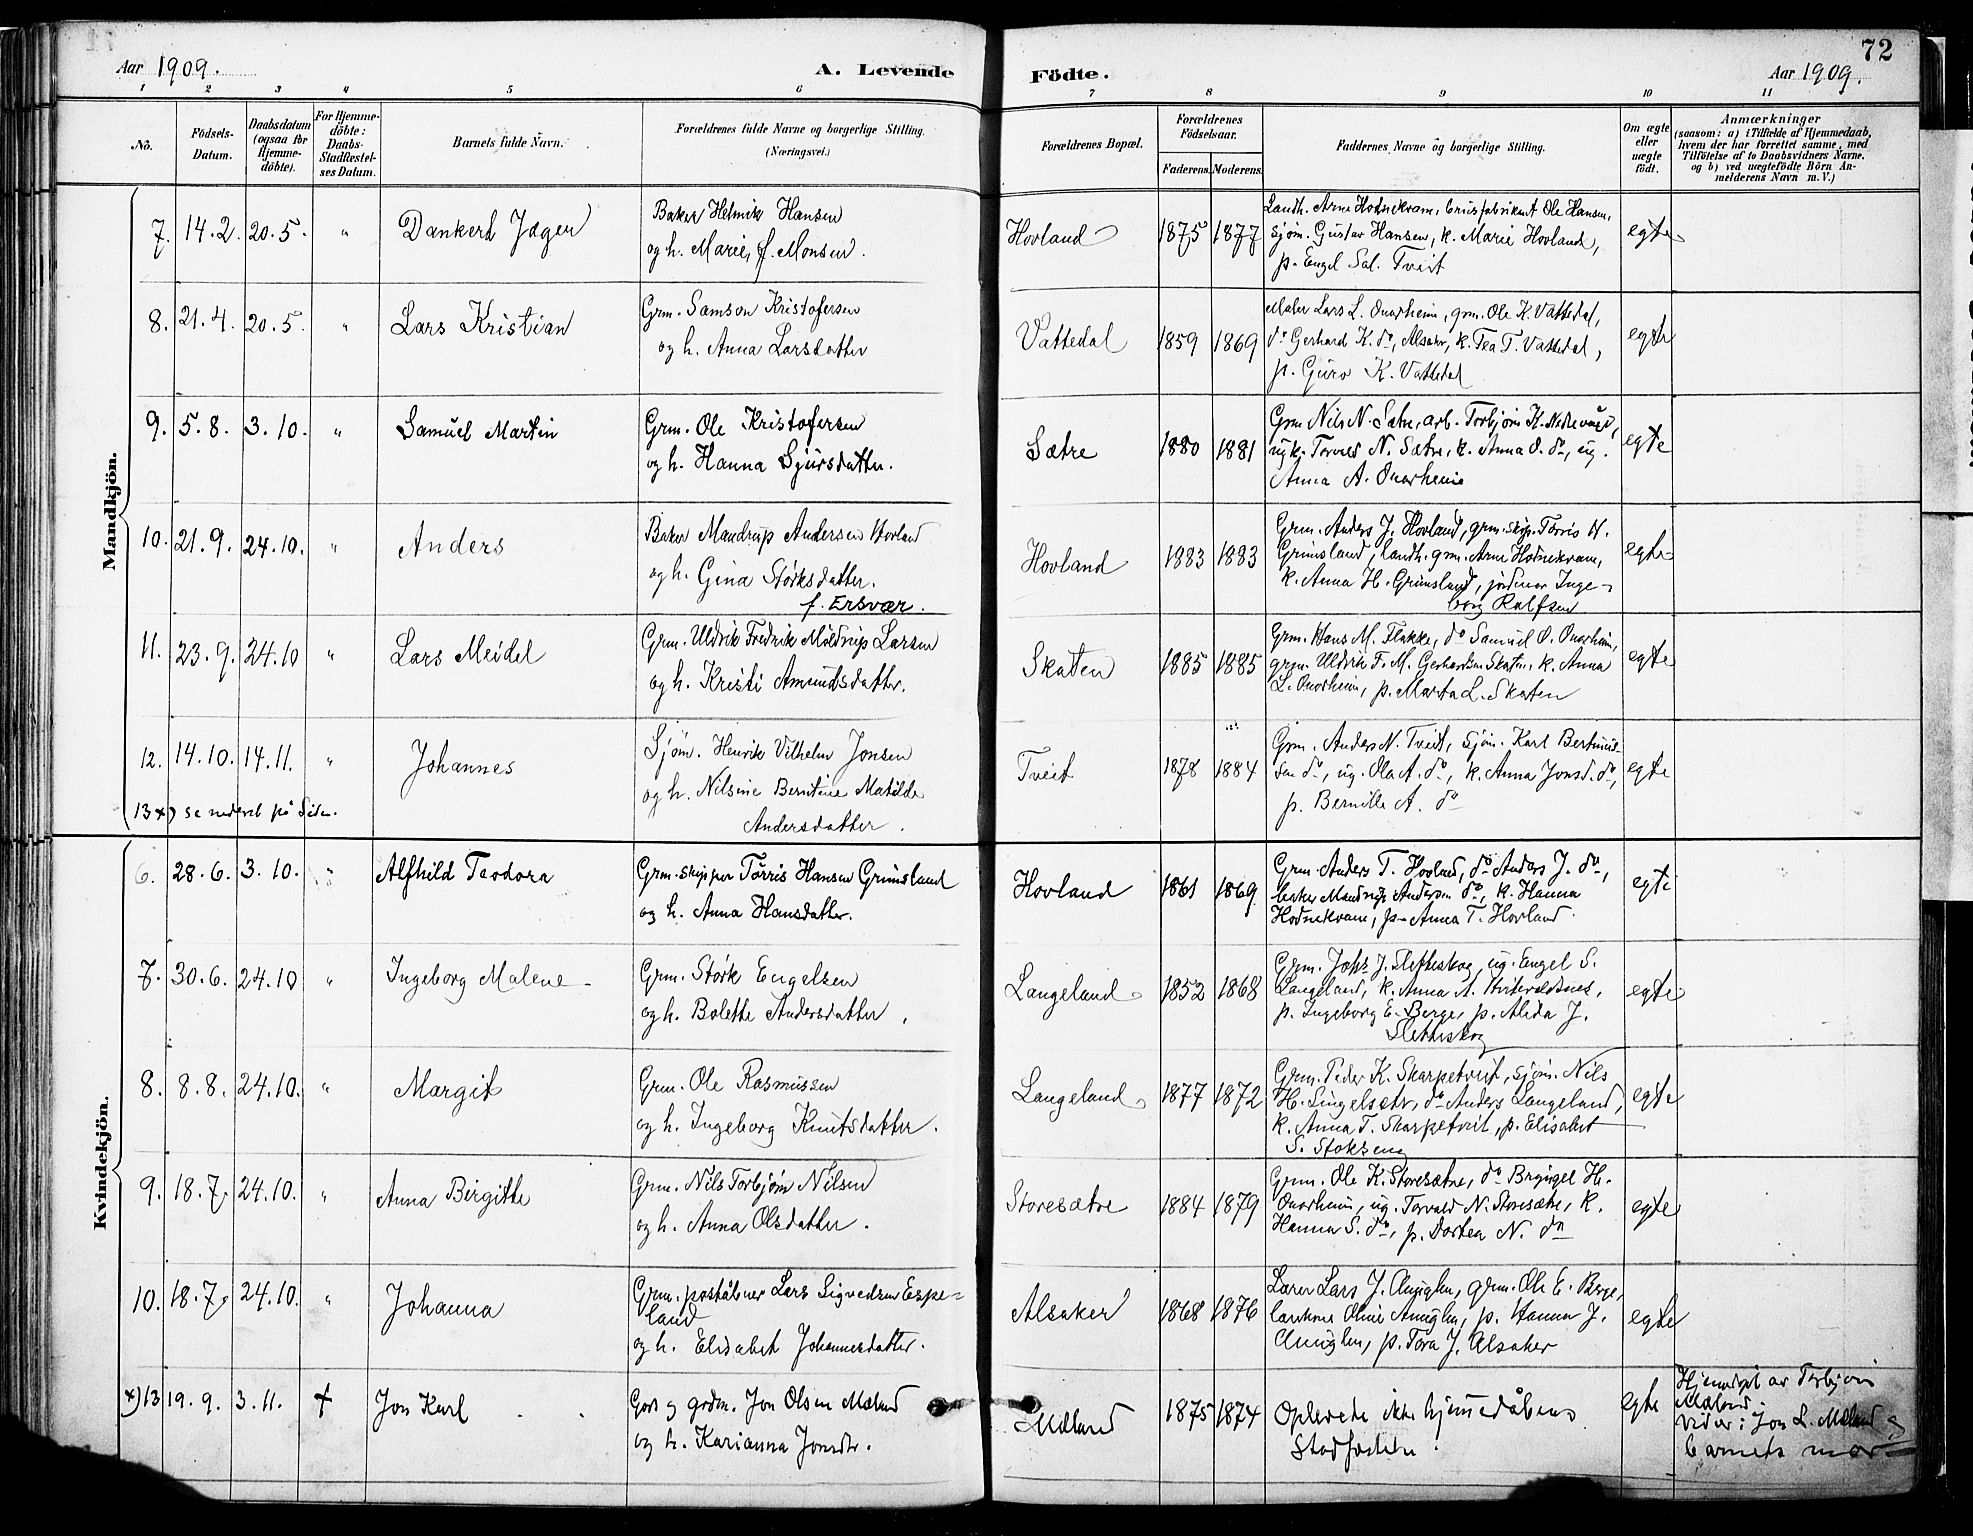 72
Aar 1909.
A. Levende
Födte.
Aar 1909.
1 2 3 4 5 6 7 8 9 10 11
No.
Födsels-
Datum.
Daabsdatum
(ogsaa for
Hjemme-
döbte).
For Hjemme-
döbte:
Daabs-
Stadfæstel-
ses Datum.
Barnets fulde Navn.
Forældrenes fulde Navne og borgerlige Stilling.
(Næringsvei.)
Forældrenes Bopæl.
Forældrenes
Födselsaar.
Faderens. Moderens.
Faddernes Navne og borgerlige Stilling.
Om ægte
eller
uægte
födt.
Anmærkninger
(saasom: a) i Tilfælde af Hjemmedaab,
hvem der har forrettet samme, med
Tilföielse af to Daabsvidners Navne,
og b) ved uægtefödte Börn An-
melderens Navn m. V.)
Mandkjön.
7. 14.2. 20.5. " Dankert Jæger
Baker Helmik Hansen
og h. Marie, f. Monsen.
Hovland 1875 1877
Landh. Arne Hodnekvam, brusfabrikant Ole Hansen,
sjøm. Gustav Hansen, k. Marie Hovland,
p. Engel Sal. Tveit
egte
8. 21.4. 20.5. " Lars Kristian
Grm. Samson Kristofersen
og h. Anna Larsdatter
Vattedal 1859 1869
Maler Lars L. Onarheim, grm. Ole K. Vattedal,
do Gerhard K. do, Alsaker, k. Tea T. Vattedal,
p. Guro K. Vattedal
egte
9. 5.8. 3.10. " Samuel Martin
Grm. Ole Kristofersen
og h. Hanna Sjursdatter.
Sætre 1880 1881
Grm. Nils N. Sætre, arb. Torbjörn K. Nedrevåge,
ugk. Torvald N. Sætre, k. Anna O. do, ug.
Anna A. Onarheim
egte
10. 21.9. 24.10. " Anders
Baker Mandrup Andersen Hovland
og h. Gina Størksdatter.
f. Ersvær.
Hovland 1883 1883
Grm. Anders J. Hovland, grm. skip. Tørris H.
Grimsland, landh. grm. Arne Hodnekvam,
k. Anna H. Grimsland, jordmor Inge-
borg Rolfsen
egte
11. 23.9. 24.10 " Lars Meidel
Grm. Uldrik Fredrik Möldrup Larsen
og h. Kristi Amundsdatter.
Skaten 1885 1885
Grm. Hans M. Flakke, do Samuel O. Onarheim,
grm. Uldrik F. M. Gerhardsen Skaten, k. Anna
L. Onarheim, p. Marta L. Skaten
egte
12. 14.10. 14.11. " Johannes
Sjøm. Henrik Vilhelm Jonsen
og h. Nilsine Berntine Matilde
Andersdatter.
Tveit 1878 1884
Grm. Anders N. Tveit, sjøm. Karl Bertinus-
sen do, ug. Ola A. do, k. Anna Jonsd. do,
p. Bernille A. do
egte
(13 x) se nederst på Siden.
Kvindekjön.
6. 28.6. 3.10. " Alfhild Teodora
Grm. skipper Tørris Hansen Grimsland
og h. Anna Hansdatter.
Hovland 1861 1869
Grm. Anders T. Hovland, do Anders J. do,
baker Mandrup Andersen do, k. Hanna
Hodnekvam, p. Anna T. Hovland.
egte
7. 30.6. 24.10 " Ingeborg Malene
Grm. Størk Engelsen
og h. Bolette Andersdatter,
Langeland 1852 1868
Grm. Johs J. Sletteskog, ug. Engel S.
Langeland, k. Anna A.
p. Ingeborg E. Berge, p. Alida J.
Sletteskog
egte
8. 8.8. 24.10. " Margit
Grm. Ole Rasmussen
og h. Ingeborg Knutsdatter.
Langeland 1877 1872
Grm. Peder K. Skarpetveit, sjöm. Nils
H. Singelsætr, do Anders Langeland,
k. Anna T. Skarpetveit, p. Elisabet
S. Stoksem
egte
9. 18.7. 24.10. " Anna Birgitte
Grm. Nils Torbjörn Nilsen
og h. Anna Olsdatter.
Storesætre 1884 1879
Grm. Ole K. Storesætre, do Brynjel H.
Onarheim, ug. Torvald N. Storesætre, k.
Hanna S. do, p. Dortea N. do
egte
10. 18.7. 24.10. " Johanna
Grm. poståbner Lars Sigvedsen Espe-
land
og h. Elisabet Johannesdatter.
Alsaker 1868 1876
Lærer Lars J. Auglen, grm. Ole E. Berge,
Oline p. Hanna J.
p. Tora J. Alsaker
egte
x) 13 19.9. 3.11. + Jon Karl
og grdm. Jon Olsen Mæland
og h. Karianna Jonsdtr.
Mæland 1875 1874
Oplevede ikke hjemmedåbens
Stadfestelse.
egte
Hjemdøpt av Torbjörn
Mæland.
Vidner: Jon L. Mæland og
barnets mor